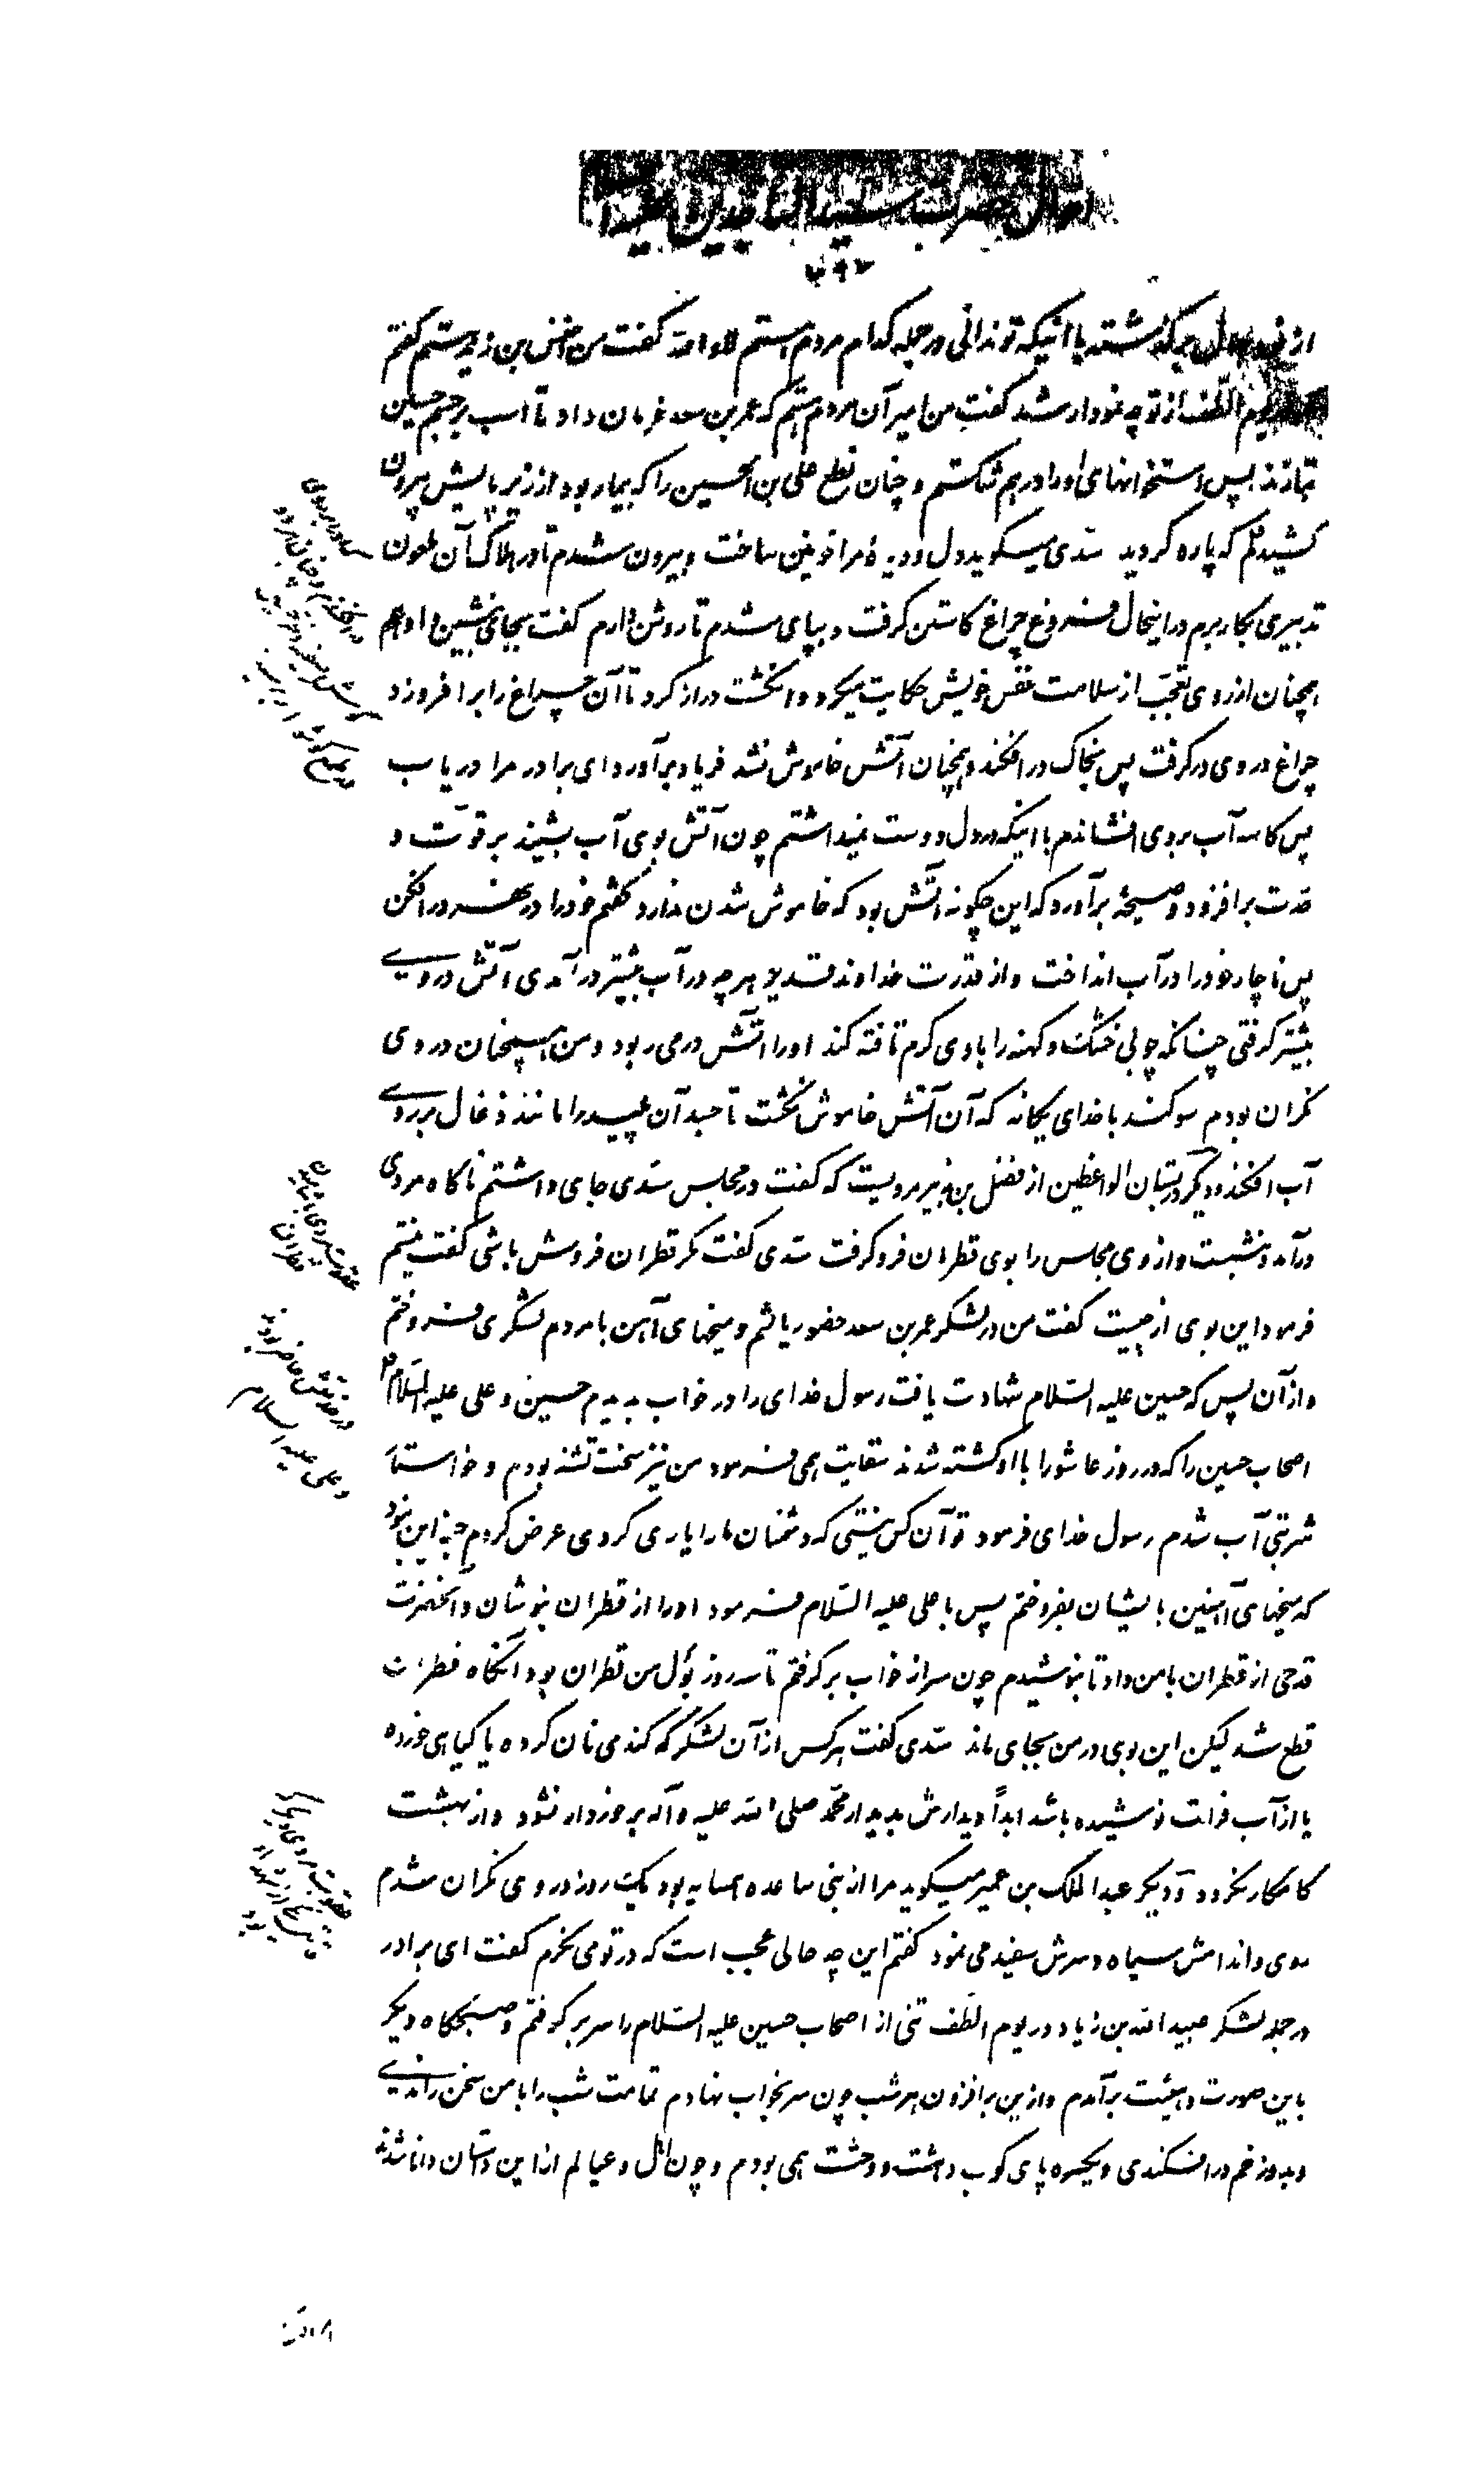 احوال حضرت سید الساجدین علیه السلام
۷۹۲
از میگذشته با اینکه تو ندانی در جمله کدام مردم هستم لا والله گفت من اخنس بن زید هستم گفتم
یوم الطف از تو چه نمودار شد گفت من امیر آن مردم هستم که عمر بن سعد فرمان داد تا اسب بر جسم حسین
بتازند پس استخوانهای او را درهم شکستم و چنان نطع علی بن الحسین را که بیمار بود از زیر پایش بیرون
کشیدم که پاره گردید سدی میگوید دل و دیدهٔ مرا خونین ساخت و بیرون شدم تا در هلاک آن ملعون
تدبیری بکار برم در اینحال فروغ چراغ کاستن گرفت و بپای شدم تا روشن دارم گفت بجای بنشین و او هم
همچنان از روی تعجب از سلامت نفس خویش حکایت میکرد و انگشت دراز کرد تا آن چراغ را برافروزد
چراغ در وی درگرفت پس بخاک درافکند و همچنان آتش خاموش نشد فریاد برآورد ای برادر مرا دریاب
پس کاسه آب بروی افشاندم با اینکه در دل دوست نمیداشتم چون آتش بوی آب بشنید بر قوت و
حدت برافزود و صیحهٔ برآورد که این چگونه آتش بود که خاموش شدن ندارد گفتم خود را در نهر درافکن
پس ناچار خود را در آب انداخت و از قدرت خداوند قدیر هر چه در آب بیشتر درآمدی آتش در وی
بیشتر گرفتی چنانکه چوبی خشک و کهنه را بادی گرم تافته کند او را آتش در می ربود و من همچنان در وی
نگران بودم سوگند با خدای یگانه که آن آتش خاموش نگشت تا جسد آن پلید را مانند ذغال بر روی
آب افکند و دیگر در بستان الواعظین از فضل بن زبیر مرویست که گفت در مجلس سدی جای داشتم ناگاه مردی
درآمد و بنشست و از وی مجلس را بوی قطران فرو گرفت سدی گفت مگر قطران فروش باشی گفت نیستم
فرمود این بوی از چیست گفت من در لشکر عمر بن سعد حضور یافتم و میخهای آهن با مردم لشکری فروختم
و از آن پس که حسین علیه السلام شهادت یافت رسول خدای را در خواب بدیدم حسین و علی علیه السلام
اصحاب حسین را که در روز عاشورا با او کشته شدند سقایت همی فرمود من نیز سخت تشنه بودم و خواستار
شربتی آب شدم رسول خدای فرمود تو آن کس نیستی که دشمنان ما را یاری کردی عرض کردم جز این نبود
که میخهای آهنین بایشان بفروختم پس با علی علیه السلام فرمود او را از قطران بنوشان و آنحضرت
قدحی از قطران با من داد تا بنوشیدم چون سر از خواب برگرفتم تا سه روز بول من قطران بود آنگاه قطران
قطع شد لیکن این بوی در من بجای ماند سدی گفت هر کس از آن لشکر که گندمی نان کرده یا گیاهی خورده
یا از آب فرات نوشیده باشد ابداً دیدارش بدیدار محمد صلی الله علیه و آله برخوردار نشود و از بهشت
کامکار نگردد و دیگر عبد الملک بن عمیر میگوید مرا از بنی ساعده همسایه بود یک روز در وی نگران شدم
موی و اندامش سیاه و سرش سفید می نمود گفتم این چه حالی عجب است که در تو می نگرم گفت ای برادر
در جمله لشکر عبید الله بن زیاد در یوم الطف تنی از اصحاب حسین علیه السلام را سر برگرفتم و صبحگاه دیگر
باین صورت و هیئت برآمدم و ازین برافزون هر شب چون سر بخواب نهادم تمامت شب را با من سخن راندی
و بدوزخم درافکندی و یکسره پای کوب دهشت و وحشت همی بودم و چون اهل و عیالم از این داستان دانا شدند
و علی علیه السلام